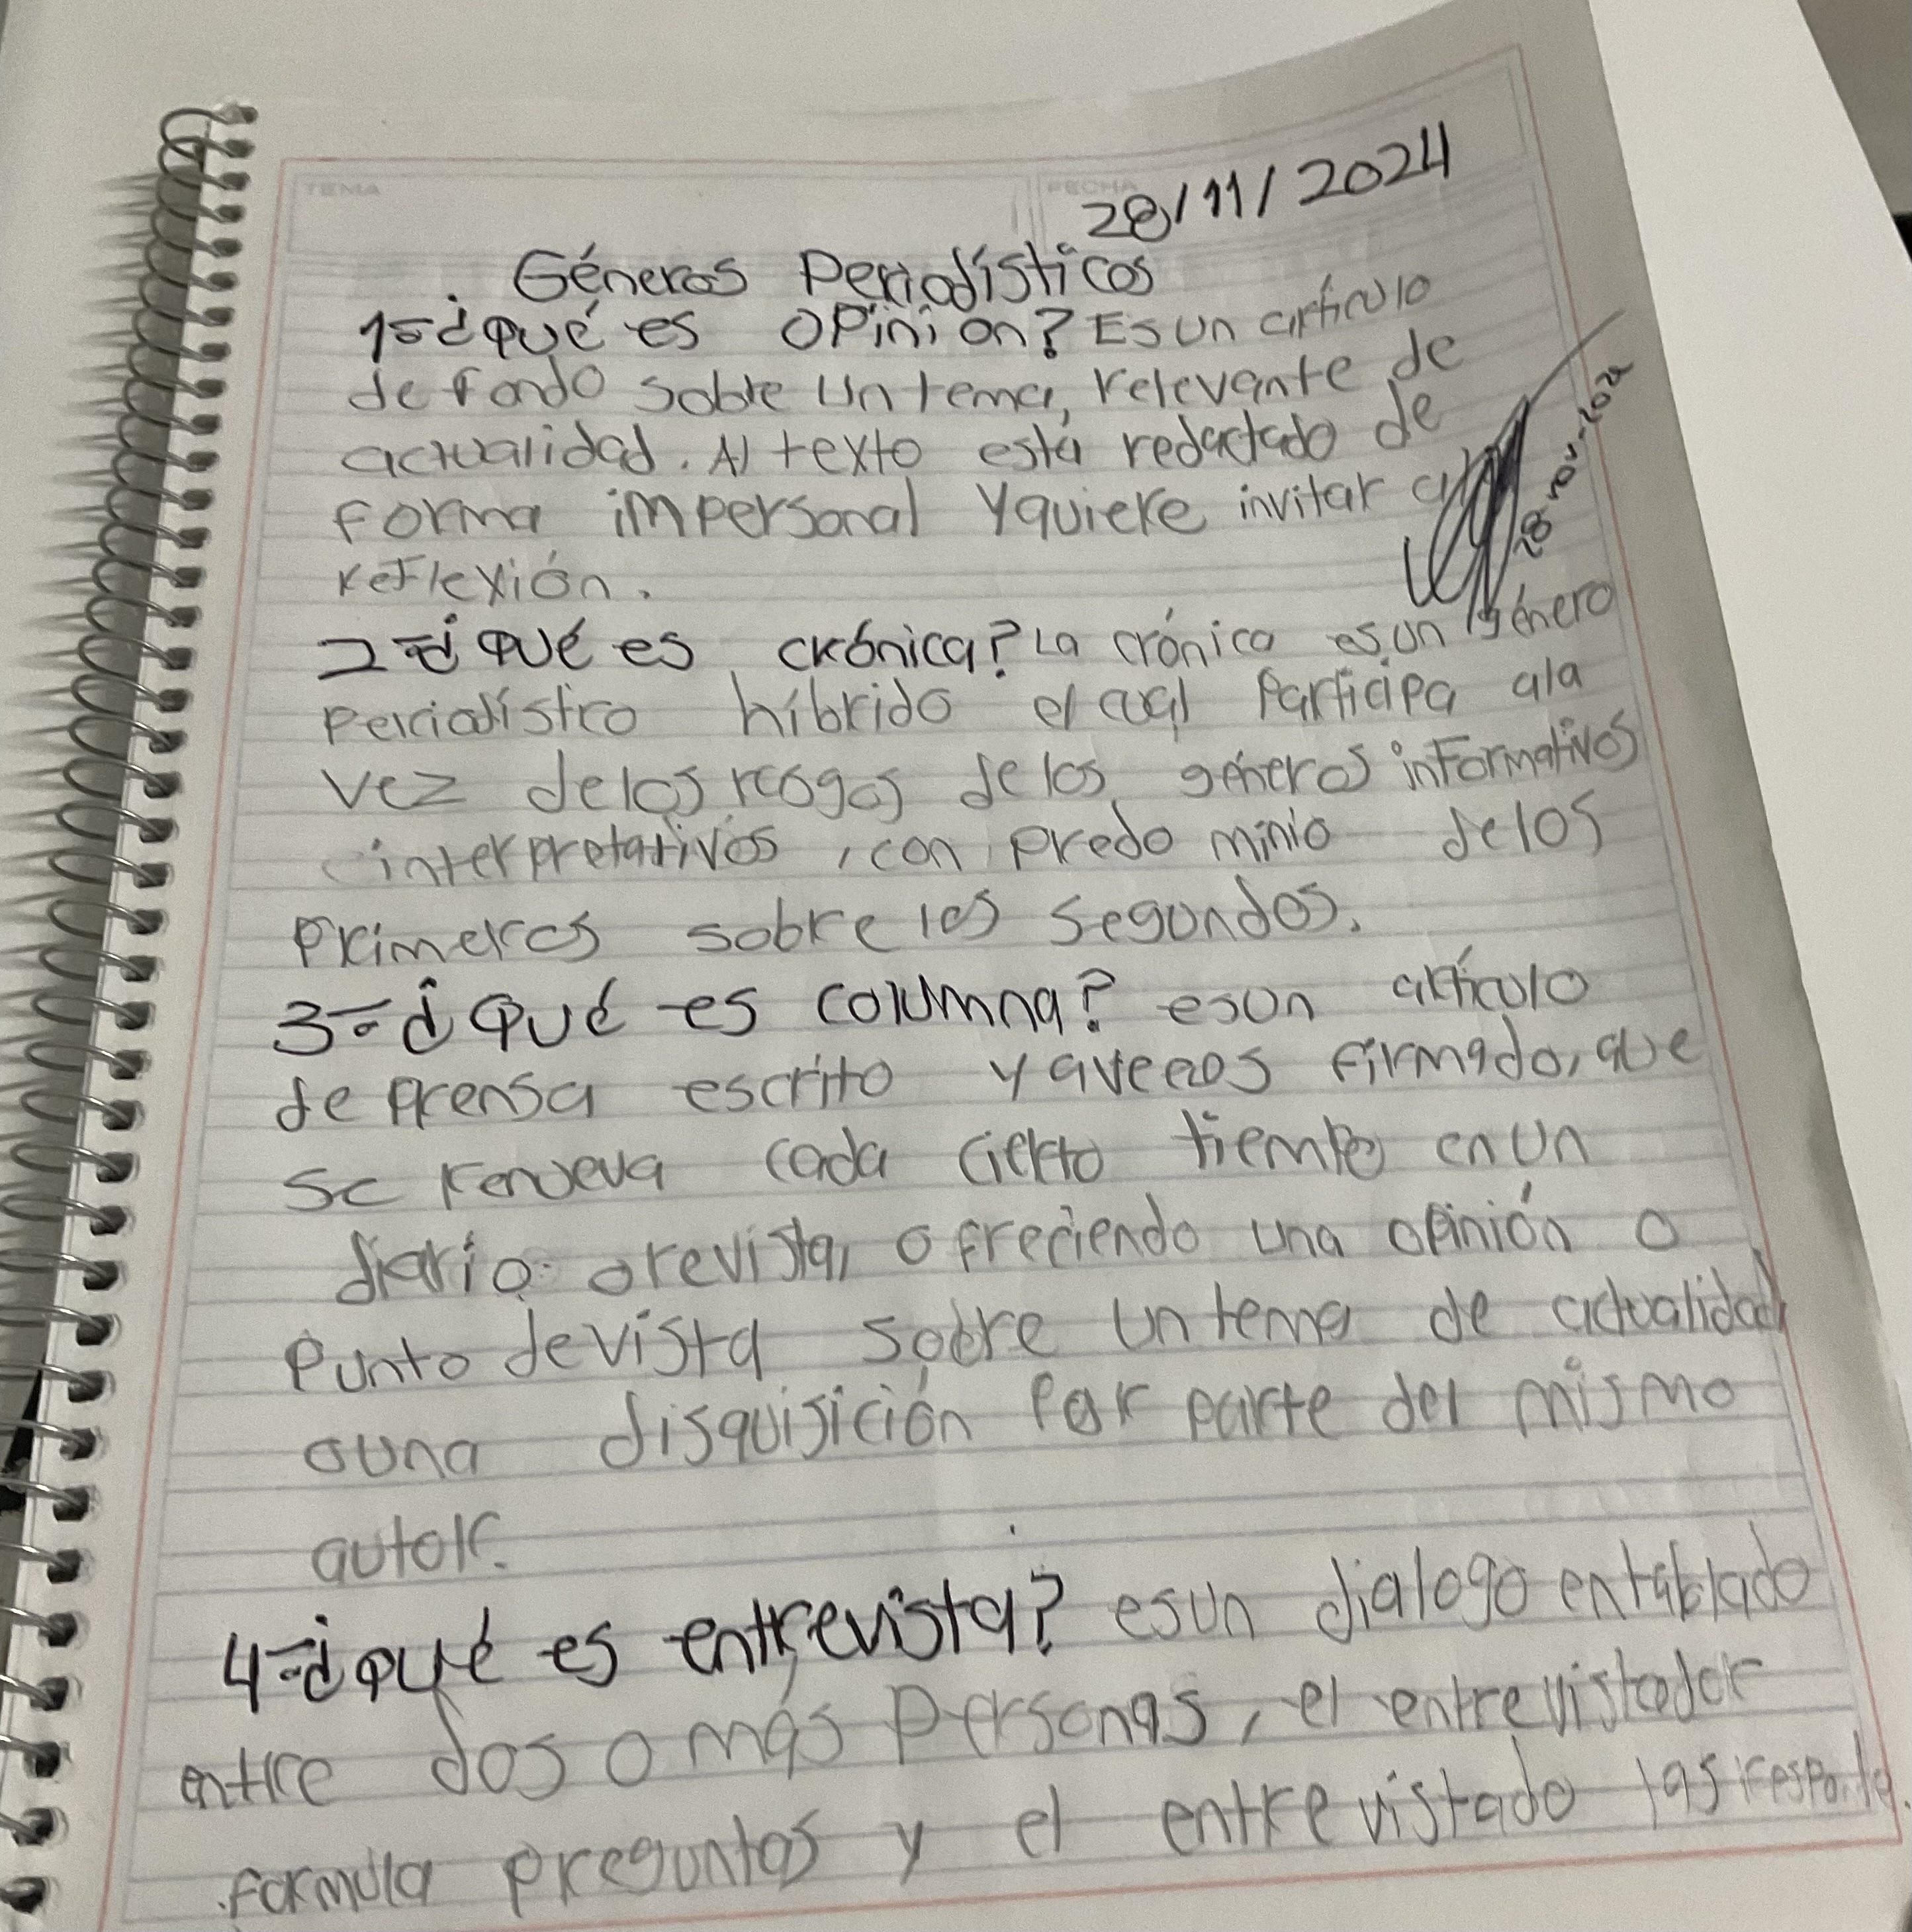 TEMA
FECHA
28/11/2024
Géneros Periodísticos
1=¿qué es opinion? Es un artículo
de fondo sobre un tema, relevante de
actualidad. Al texto está redactado de
forma impersonal y quiere invitar a
reflexión.
28-nov-2024
2=¿qué es crónica? La crónica es un género
periodístico híbrido el cual participa ala
vez delos rasgos de los géneros informativos
interpretativos, con predo minio delos
primeros sobre los segundos.
3=¿Qué es columna? esun artículo
de prensa escrito y aveces firmado, que
se renueva cada cierto tiempo en un
diario o revista, ofreciendo una opinión o
punto de vista sobre un tema de actualidad
o una disquisición por parte del mismo
autor.
4=¿qué es entrevista? esun dialogo entablado
entre dos o más personas, el entrevistador
formula preguntas y el entrevistado las responde.